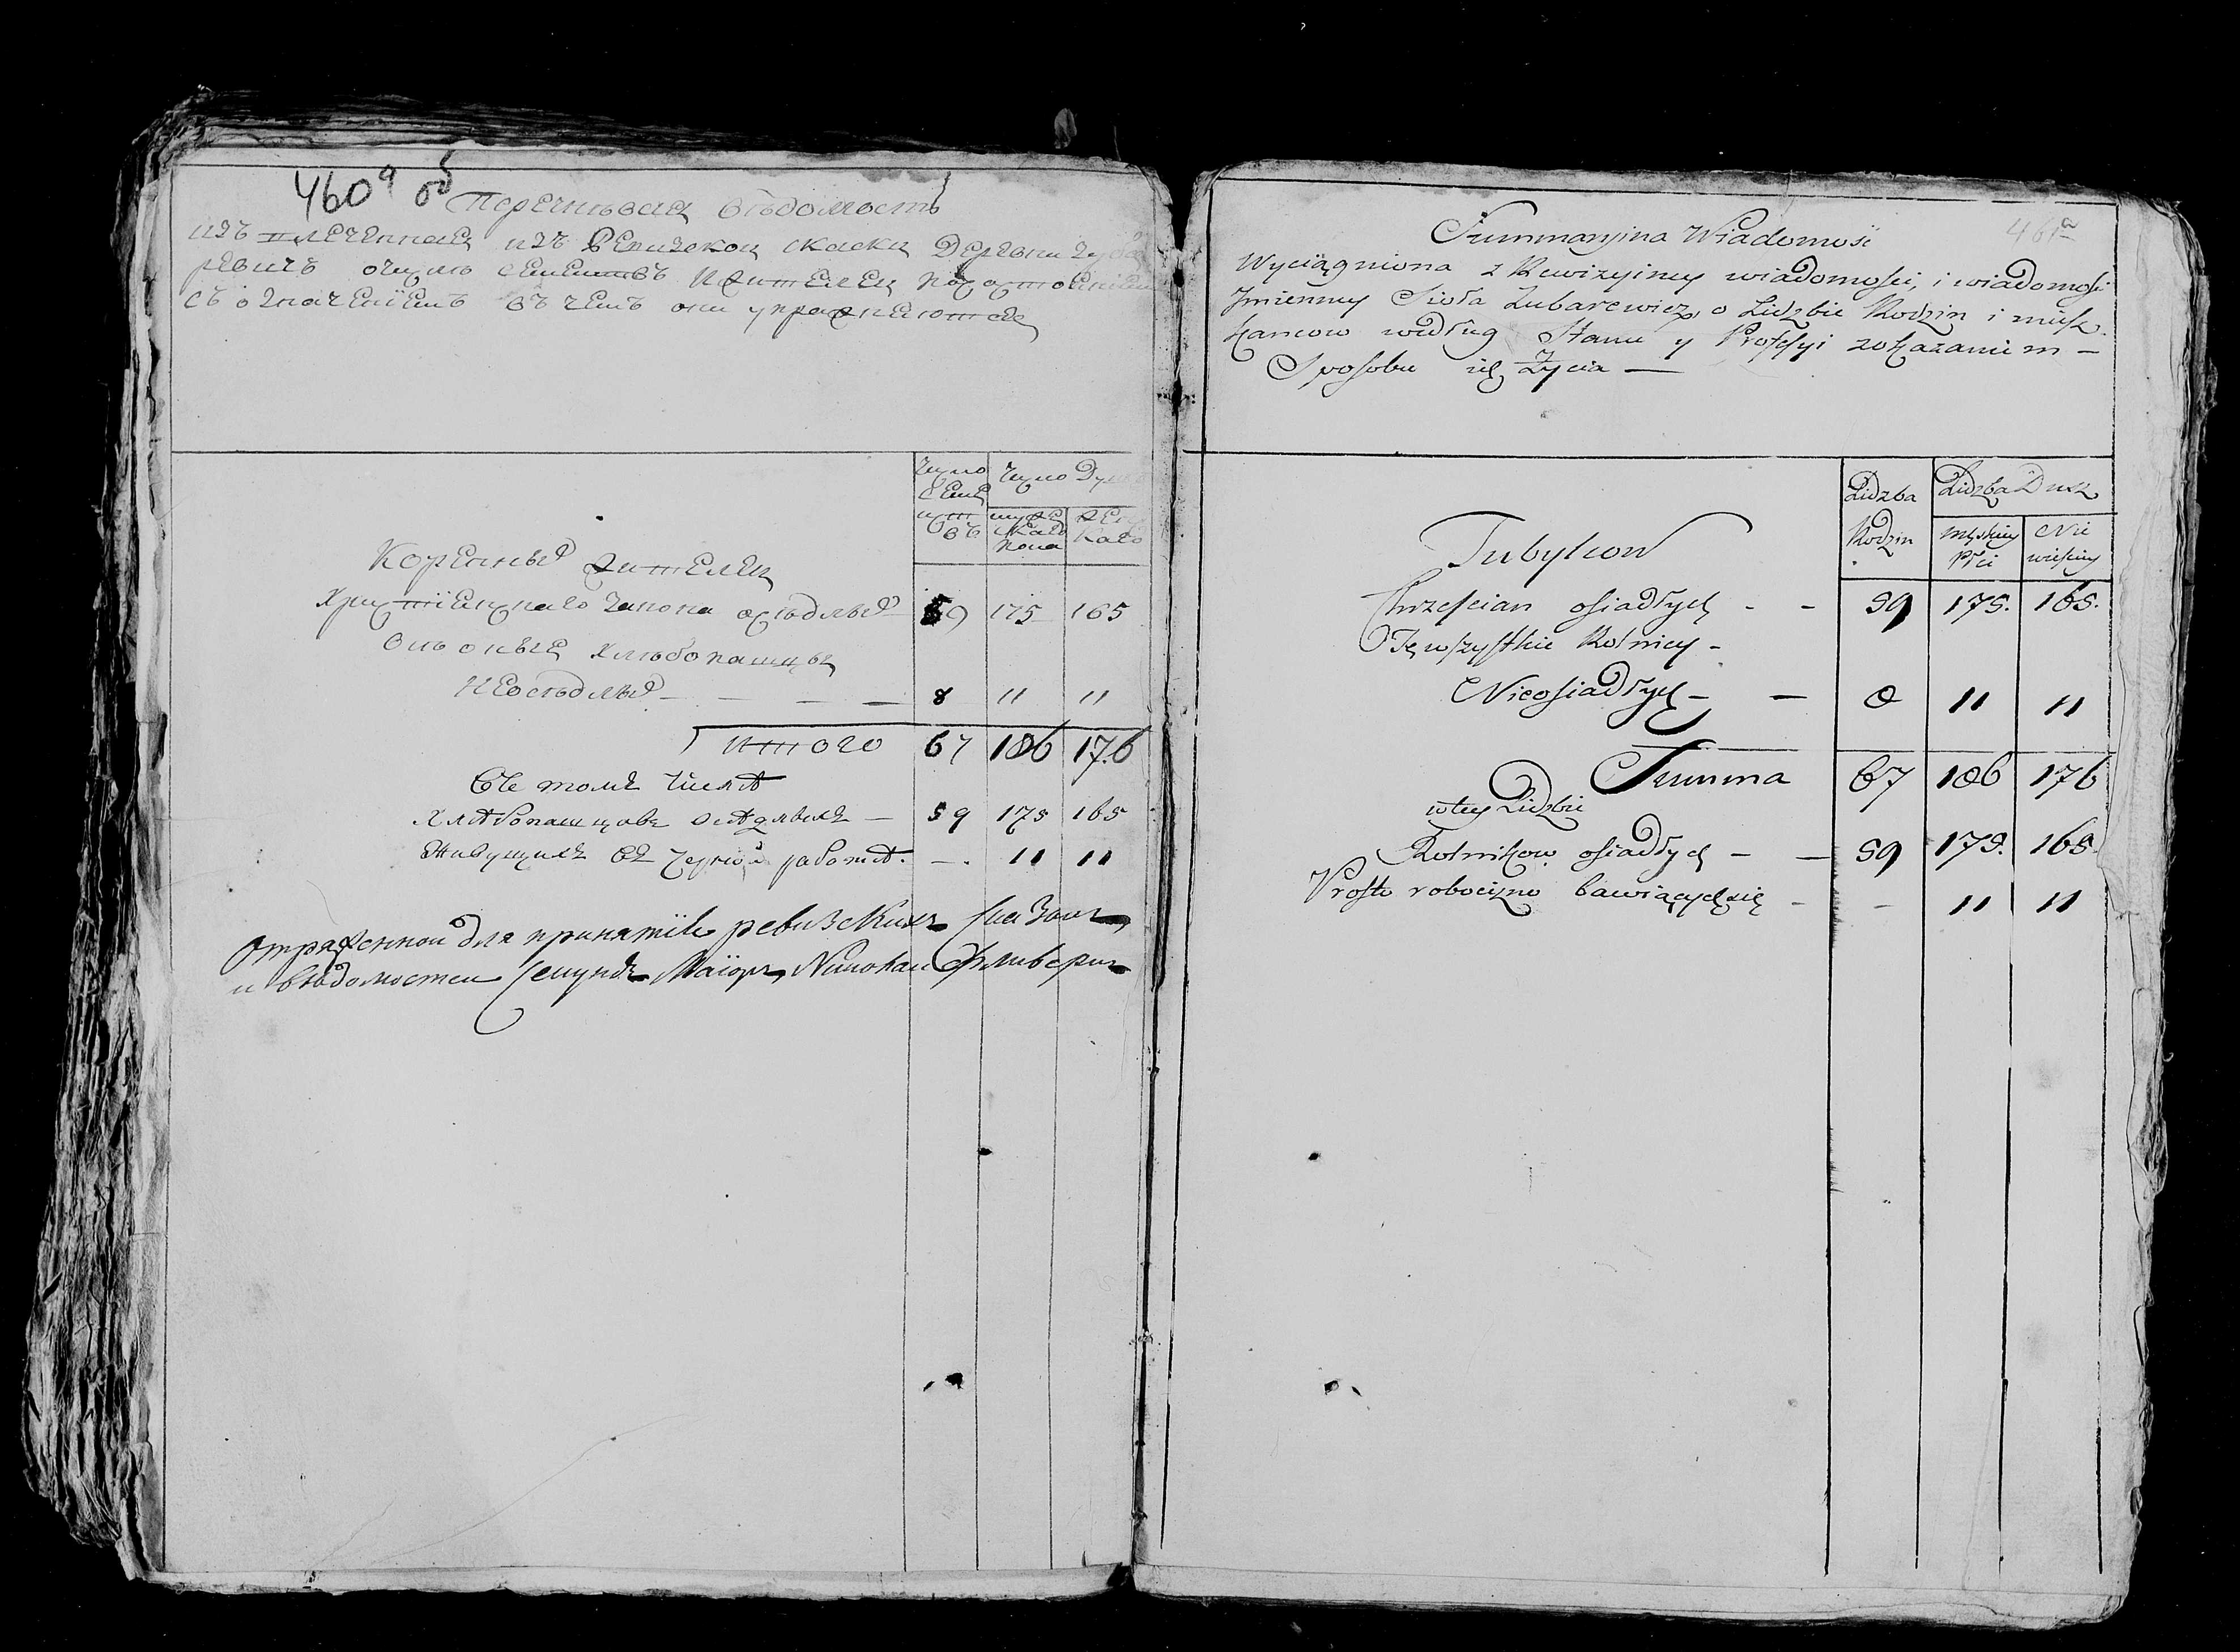 460а об
Перечневая ведомость
изъ влеченная изъ Ревизской скаски Деревни Зуба
ревичъ очисле семействъ Ижителей посостоянию
съ означениемъ въ чемъ они упражняются
Число семей ствъ
Число Душъ
мужеска пола
женс каго
Коренные жителей
Християнскаго закона оседлые 59 175 165
Оные хлебопашцы
Неоседлые – – – – 8 11 11
Итого 67 186 176
Въ томъ числѣ
Хлѣбопашцовъ осѣдлыхъ – 59 175 165
Живущихъ въ черной работѣ. – 11 11
Отряженной для принятия ревизскихъ сказокъ
и ведомостей Секундъ Маиоръ Николай
461а
Summaryina Wiadomość
Wyciągniona z Rewizyiney wiadomości, i wiadomości
Jmienney Sioła Zubarewicz, o Lidzbie Rodzin i miesz
kancow według Stanu y Professyi zokazaniem –
Sposobu ich Życia —
Lidzba Rodzin
Lidzba Dusz
męskiey Płci
Nie wieskiey
Tubylcow
Chrześcian osiadłych - - 59 175. 165.
Ci wszystkie Rolnicy -
Nieosiadłych - — 8 11 11
Summa 67 186 176
wtey Lidzbie
Rolnikow osiadłych – — 59 175. 165.
Prosto robocizno bawiących się - – 11 11